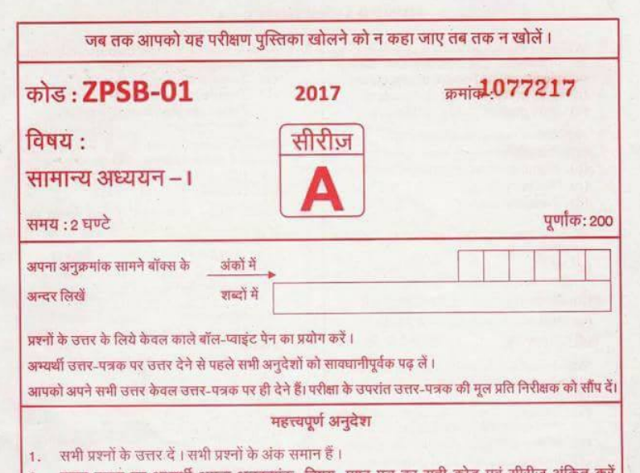 जब तक आपको यह परीक्षण पुस्तिका खोलने को न कहा जाए तब तक न खोलें।
कोड : ZPSB-01 2017 क्रमांक:- 1077217
विषय : सीरीज़
सामान्य अध्ययन – I A
समय : 2 घण्टे पूर्णांक: 200
अपना अनुक्रमांक सामने बॉक्स के अंकों में
अन्दर लिखें शब्दों में
प्रश्नों के उत्तर के लिये केवल काले बॉल-प्वाइंट पेन का प्रयोग करें।
अभ्यर्थी उत्तर-पत्रक पर उत्तर देने से पहले सभी अनुदेशों को सावधानीपूर्वक पढ़ लें।
आपको अपने सभी उत्तर केवल उत्तर-पत्रक पर ही देने हैं। परीक्षा के उपरांत उत्तर-पत्रक की मूल प्रति निरीक्षक को सौंप दें।
महत्त्वपूर्ण अनुदेश
1. सभी प्रश्नों के उत्तर दें। सभी प्रश्नों के अंक समान हैं।